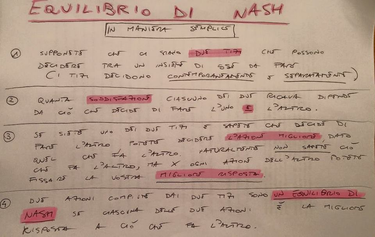 EQUILIBRIO DI NASH
IN MANIERA SEMPLICE
① SUPPONETE CHE CI SIANO DUE TIZI CHE POSSONO
DECIDERE TRA UN INSIEME DI COSE DA FARE
(I TIZI DECIDONO CONTEMPORANEAMENTE E SEPARATAMENTE)
② QUANTA SODDISFAZIONE CIASCUNO DEI DUE RICAVA DIPENDE
DA CIÒ CHE DECIDE DI FARE L'UNO E L'ALTRO.
③ SE SIETE UNO DEI DUE TIZI E SAPETE CHE DECIDE DI
FARE L'ALTRO POTETE DECIDERE L'AZIONE MIGLIORE DATO
QUEL CHE FA L'ALTRO. NATURALMENTE NON SAPETE CIÒ
CHE FA L'ALTRO, MA X OGNI AZIONE DELL'ALTRO POTETE
FISSARE LA VOSTRA MIGLIORE RISPOSTA.
④ DUE AZIONI COMPIUTE DAI DUE TIZI SONO UN EQUILIBRIO DI
NASH SE CIASCUNA DELLE DUE AZIONI È LA MIGLIORE
RISPOSTA A CIÒ CHE FA L'ALTRO.